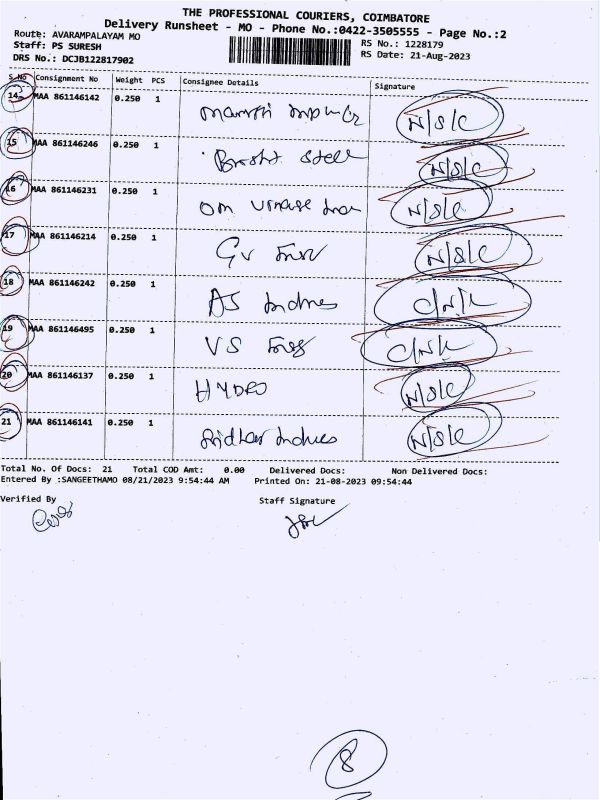 THE PROFESSIONAL COURIERS, COIMBATORE
Delivery Runsheet - MO - Phone No.:0422-3505555 - Page No.:2
Route: AVARAMPALAYAM MO
Staff: PS SURESH
DRS No.: DCJB122817902
RS No.: 1228179
RS Date: 21-Aug-2023
S.No Consignment No Weight PCS Consignee Details Signature
14 MAA 861146142 0.250 1 N/S/C
15 MAA 861146246 0.250 1 Bright Steel N/S/C
16 MAA 861146231 0.250 1 Om N/S/C
17 MAA 861146214 0.250 1 GV N/S/C
18 MAA 861146242 0.250 1 AS Indus C/N/L
19 MAA 861146495 0.250 1 VS Engg C/N/L
20 MAA 861146137 0.250 1 HYDRO N/S/C
21 MAA 861146141 0.250 1 Sridhar Indus N/S/C
Total No. Of Docs: 21 Total COD Amt: 0.00 Delivered Docs: Non Delivered Docs:
Entered By :SANGEETHAMO 08/21/2023 9:54:44 AM Printed On: 21-08-2023 09:54:44
Verified By Staff Signature
8